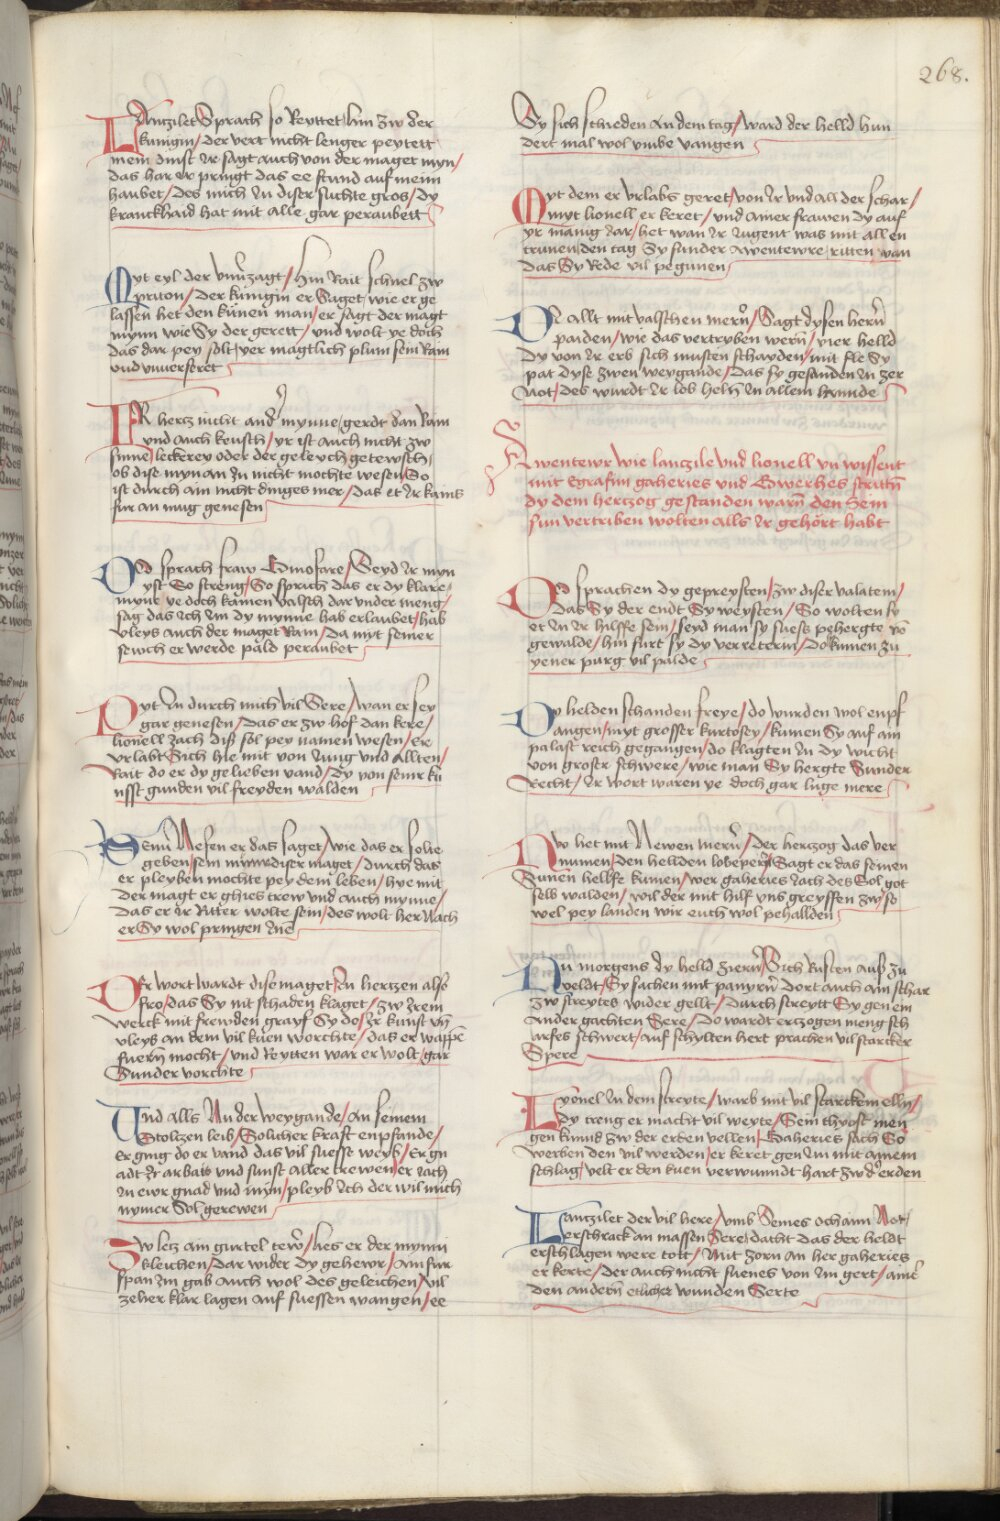 268.
Lanczilet Sprach so Reyttet hin zw der
kunigin / der vert nicht lenger peytett
mein dinst Ir sagt auch von der maget myn /
das har er pringt das ee stund auf meim
haubet / des mich In diser suchte gros / dy
kranckhaid hat mit alle gar peraubett
Myt eyl der unverzagt / hin Rait schnel zw
priton / der kunigin er Saget / wie er ge
lassen het den kunen man / er sagt der magt
mynn wie Sy der gerett / und wolt ye doch
das dar pey solt / yer magtlich plum sein Ram
und unverseret
IR hertz nicht ander mynne / gerdt dan Ram
und auch keusch / yr ist auch nicht zw
sinne / leckerey oder der geleych getewsch /
ob dise mynan zu nicht mochte wesen / So
ist durch ain nicht dinges mer / das et Ir kains
fur an mug genesen
Do sprach fraw Ginofare / Seyd Ir myn
yst So streng / So sprach das er dy klare
mynn ye doch kainen valsch dar under meng /
sag das ich Im dy mynne hab erlaubet / hab
vleys auch der maget Ram / da myt seiner
sewch er werde pald peraubet
Pyt In durch mich vil Sere / wan er sey
gar genesen / das er zw hof dan kere /
lionell zach diß sol pey namen wesen / Er
Urlabt Sich hie mit von Jung und allten /
Rait do er dy gelieben vand / dy von seinr ku
nfft gunden vil freyden walden
Seim Nefen er das saget / wie das er solte
geben sein mynn diser maget / durch das
er pleyben mochte pey dem leben / hye mit
der magt er ghies trew und auch mynne /
das er Ir Ritter wolte sein / des wolt her Nach
er Sy wol pringen Inne
Der wort wardt dise maget / In hertzen also
fro / das Sy nit schaden klaget / zw Irem
werck mit frewden grayf Sy do / Ir kunst und
vleys an dem vil kuen worchte / das er wappen
fuern mocht / und Reytten war er wolt / gar
Sunder vorchte
Und alls Nu der weygande / an seinem
Stoltzen leib / Solicher kraft enpfande /
er ging do er vand das vil suesse weyb / Er gn
adt Ir arbait und sunst aller trewen / er zach
In ewr gnad und mynn / pleyb Ich der wil mich
nymer Sol gerewen
Zw letz ain gurtel tewr / lies er der mynni
kleichen / dar wider dy gehewr / Ain fur
span Im gab auch wol des geleichen / vil
zeher klar lagen auf suessen wangen / ee
Sy sich schieden an dem tag / ward der helld hun
dert mal wol umbe vangen
Myt dem er Urlabs geret / von Ir und all der schar /
myt lionell er keret / und ainer frawen dy auf
yr manig Jar / het wan Ir Jugent was mit allen
trauen / den tag Sy sunder Awentewre / ritten van
das Sy Rede vil pegunen
Dr allt mit valschen mern / Sagt dysen hern
paiden / wie das vertryben wern / vier helld
dy von Ir erb sich musten schayden / mit fle Sy
pat dyse zwen weygande / das sy gestanden In zer
Not / des wurdt Ir lob hehn In allem lannde
Awentewr wie lanczile und lionell un wissent
mit Egrafin gaheries und Gwerhes stritn
dy dem hertzog gestanden warn den Sein
sun vertriben wolten alls Ir gehort habt
Do sprachen dy gepreysten / zw diser valatein /
das Sy der endt Sy weysten / So wolten sy
et In Ir hilffe sein / seyd man sy suess pehergte von
gewalde / hin furt sy dy verreterin / do kumen zu
yener purg vil palde
Dy helden schanden freye / do wurden wol enpf
angen / myt grosser kurtosey / kumen Sy auf ain
palast reich gegangen / do klagten In dy wicht
von groser schwere / wie man Sy hergte Sunder
Recht / Ir wort waren ye doch gar luge mere
Nu het mit Newen mern / der hertzog das ver
numen / den hellden lobepern / Sagt er das seinen
Sunen hellfe kumen / wer gaheries Jach des Sol got
selb walden / wil der mit hilf uns greyffen zw / so
wel pey landen wir euch wol pehallden
Nu morgens dy helld ziern / Sich Rusten aus zu
veldt / Sy sachen mit panyrn dort auch ain schar
zw streytes wider gellt / durch streytt Sy gen ein
ander gachten Sere / do wardt ertzogen meng sch
arfes schwert / auf schylten hert prachen vil starcker
Spere
Lyonel In dem streyte / warb mit vil starckem elln /
dy treng er macht vil weyte / Sein thyost men
gen kund zw der erden vellen / Gaheries sach So
werben den vil werden / er keret gen Im mit ainem
schlag / velt er den kuen verwunndt hart zw der erden
Lanczilet der vil here / umb Semes ochaim Not /
erschrack an massen Sere / dacht das der heldt
erschlagen were tott / Mit zorn an her gaheries
er kerte / der auch nicht suenes von Im gert / ainer
den andern etlicher wunden Serte